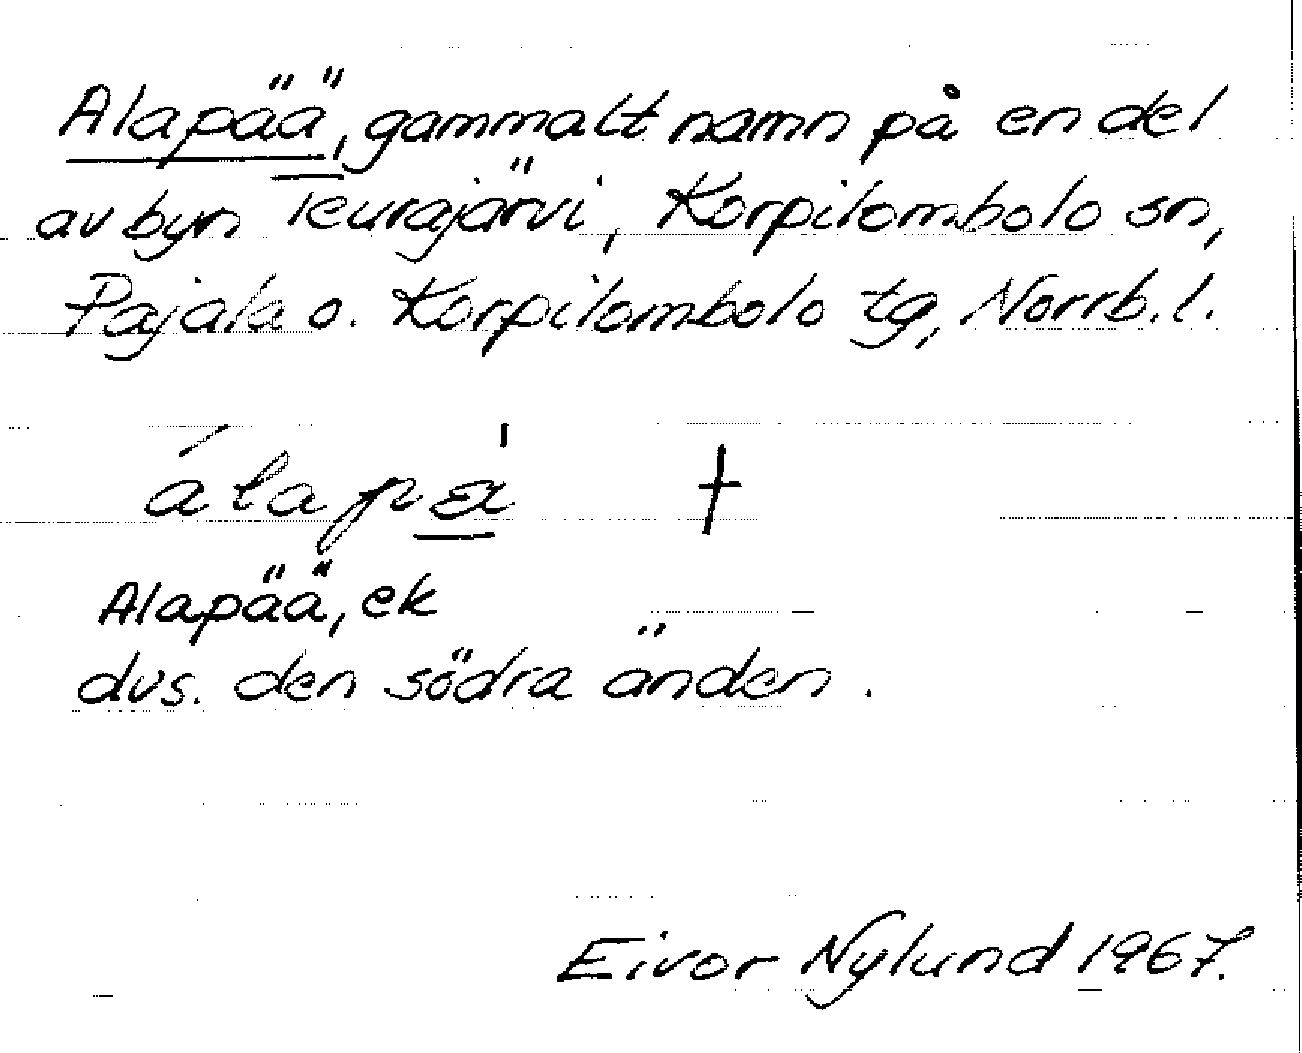 Alapää, gammalt namn på en del
av byn Teurajärvi, Korpilombolo sn,
Pajala o. Korpilombolo tg, Norrb. l.
álapæ̲' †
Alapää, ek
dvs. den södra änden.
Eivor Nylund 1967.